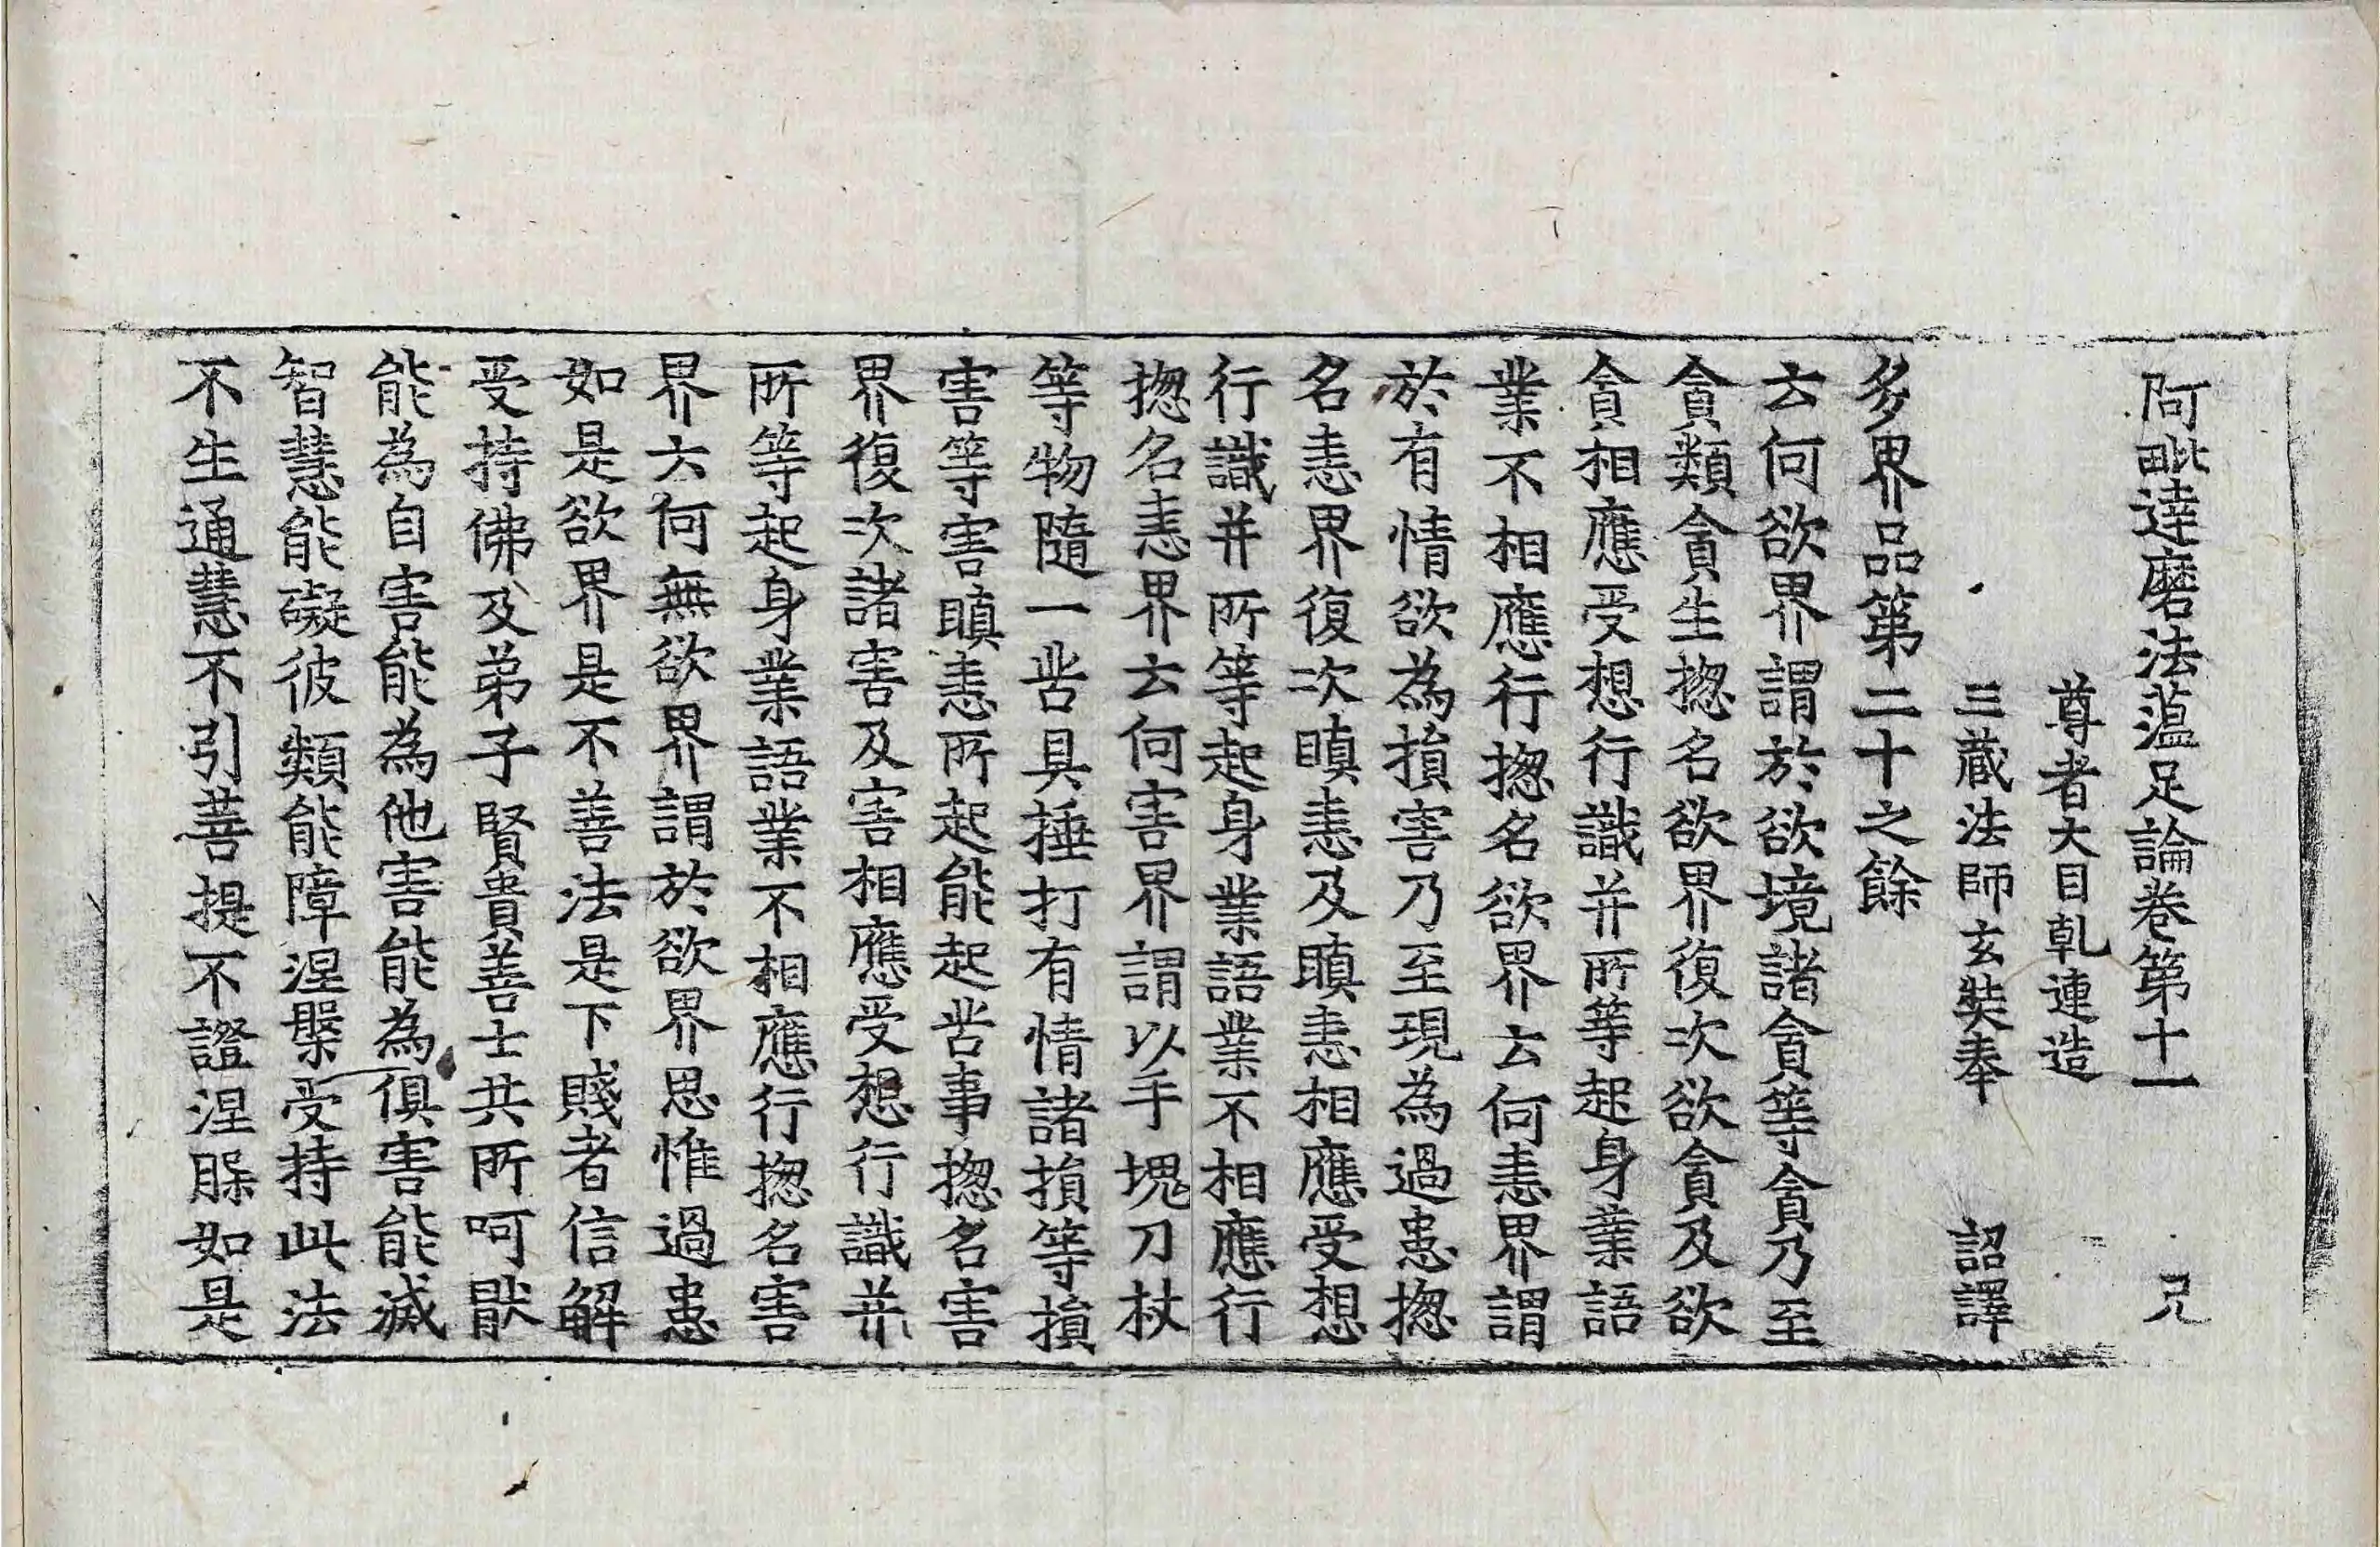 阿毗達磨法蕰足論卷第十一 兄
尊者大目乹連造
三蔵法師玄奘奉 詔譯
多界品第二十之餘
云何欲界謂於欲境諸貪等貪乃至
貪類貪生揔名欲界復次欲貪及欲
貪相應受想行識并所等起身業語
業不相應行揔名欲界云何恚界謂
於有情欲為損害乃至現為過患揔
名恚界復次瞋恚及瞋恚相應受想
行識并所等起身業語業不相應行
揔名恚界云何害界謂以手塊刀杖
等物隨一苦具捶打有情諸損等損
害等害瞋恚所起能起苦事揔名害
界復次諸害及害相應受想行識并
所等起身業語業不相應行揔名害
界云何無欲界謂於欲界思惟過患
如是欲界是不善法是下賤者信解
受持佛及弟子賢貴善士共所呵猒
能為自害能為他害能為俱害能滅
智慧能礙彼類能障涅槃受持此法
不生通慧不引菩提不證涅槃如是